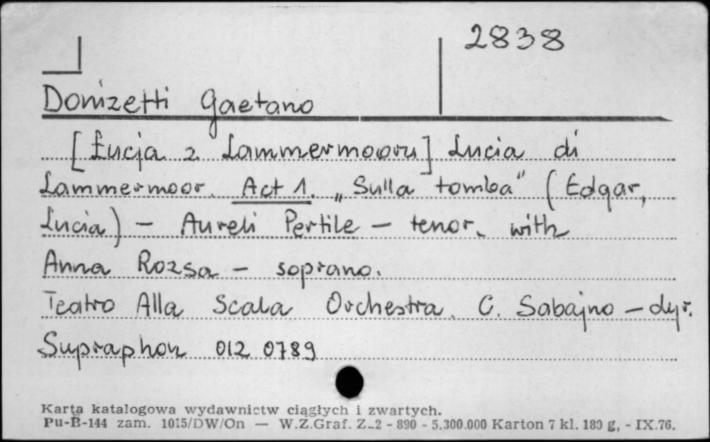 2838
Donizetti Gaetano
[Łucja z Lammermooru] Lucia di
Lammermoor. Act 1. „Sulla tomba" (Edgar,
Lucia) – Aureli Pertile – tenor, with
Anna Rozsa – soprano.
Teatro Alla Scala Orchestra. C. Sabajno – dyr.
Supraphon 012 0789
Karta katalogowa wydawnictw ciągłych i zwartych.
Pu-B-144 zam. 1015/DW/On — W.Z.Graf. Z-2 - 890 - 5.300.000 Karton 7 kl. 180 g, - IX.76.